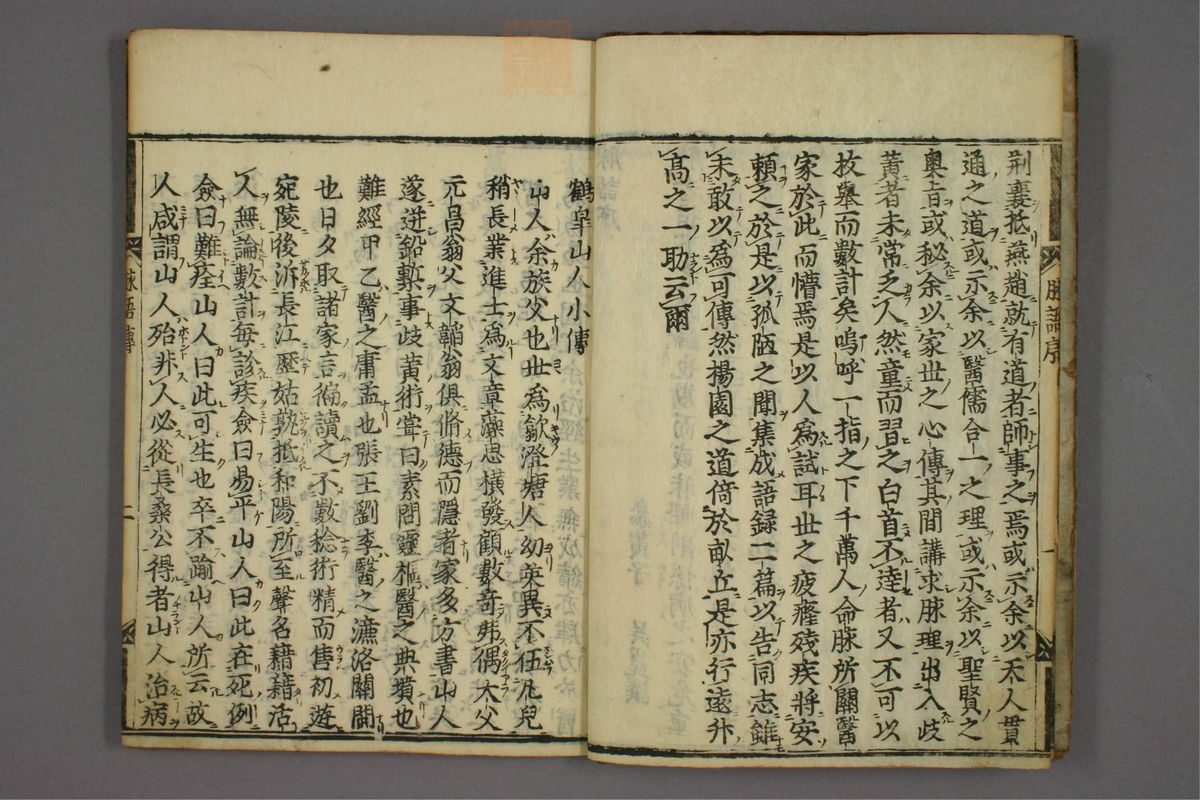 荆襄抵燕趙就有道者師事之焉或示余以天人貫
通之道或示余以醫儒合一之理或示余以聖賢之
奥旨或秘余以家世之心傳其間講求脉理出入歧
黄者未常乏人然童而習之白首不逹者又不可以
枚舉而數計矣嗚呼一指之下千萬人命脉所關醫
家於此而懵焉是以人爲試耳世之疲癃殘疾將安
頼之於是以孤陋之聞集成語録二篇以告同志雖
未敢以爲可傳然揚園之道倚於畝丘是亦行遠升
髙之一助云爾
脉語序
一
鶴皐山人小傳
山人余族父也世爲歙澄塘人幼英異不伍凡兒
稍長業進士爲文章藻思横發顧數竒弗偶大父
元昌翁父文韜翁俱脩德而隱者家多方書山人
遂迸鉛槧事歧黄術嘗曰素問靈樞醫之典墳也
難經甲乙醫之庸孟也張王劉李醫之濂洛關閩
也日夕取諸家言徧讀之不數稔術精而售初遊
宛陵後泝長江歷姑孰抵和陽所至聲名籍籍活
人無論數計每診疾僉曰易平山人曰此在死例
僉曰難痊山人曰此可生也卒不踰山人所云故
人咸謂山人殆非人必從長桑公得者山人治病
脉語傳
二